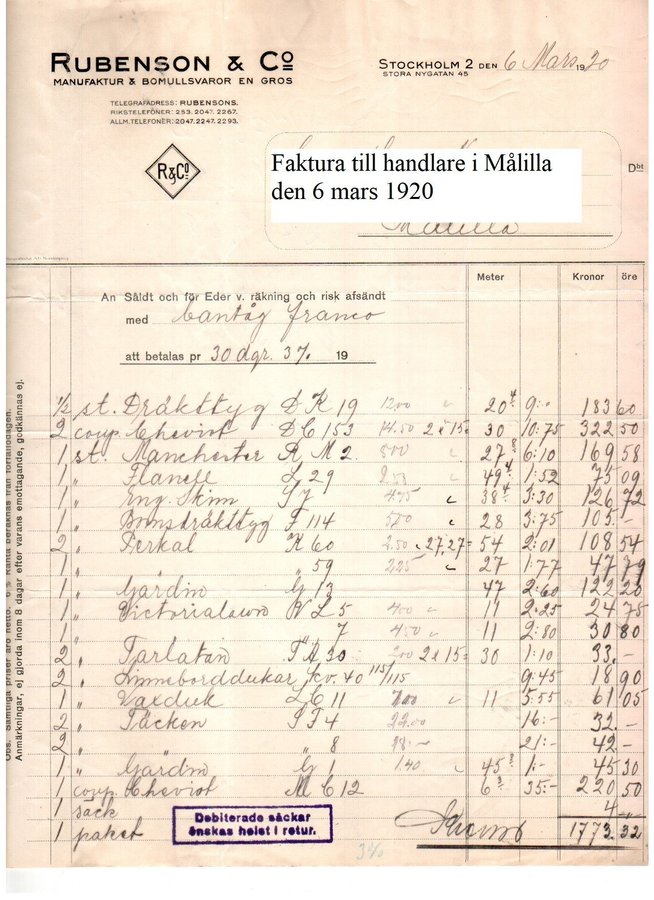 RUBENSON & Cº
MANUFAKTUR & BOMULLSVAROR EN GROS
STOCKHOLM 2 DEN 6 Mars 1920
STORA NYGATAN 45
TELEGRAFADRESS: RUBENSONS.
RIKSTELEFONER: 253. 2047. 2267.
ALLM. TELEFONER: 2047. 2247. 2293.
R&Cº
Faktura till handlare i Målilla
den 6 mars 1920
Dbt
Målilla
Meter Kronor öre
An Såldt och för Eder v. räkning och risk afsändt
med franco
att betalas pr 30 dgr. 3% 19
½ st. Dräkttyg D K 19 1200 20⁴ 9:- 183 60
2 coup. Cheviot D C 153 14.50 2 à 15 30 10:75 322 50
1 st. Manchester R M 2. 800 27⁸ 6:10 169 58
1 " Flanell L 29 49⁴ 1:52 75 09
1 " Eng. Skinn S 7 38⁴ 3:30 126 72
1 " F 114 500 28 3:75 105.-
2 " Perkal K 60 2.50 27,27= 54 2:01 108 54
1 " " 59 225 27 1:77 47 79
1 " Gardin G 13 47 2:60 122 20
1 " Victorialawn W L 5 400 11 2:25 24 75
1 " 7 450 11 2:80 30 80
2 " Tarlatan T A 30 200 2 à 15= 30 1:10 33.-
2 " Linneborddukar kv. 40 115/115 9:45 18 90
1 " Vaxduk L C 11 700 11 5:55 61 05
2 " Täcken S F 4 22.00 16:- 32.-
2 " " 8 28:- 21:- 42.-
1 " Gardin G 1 140 45³ 1:- 45 30
1 coup. Cheviot M C 12 6³ 35:- 220 50
1 säck 4.-
1 paket 1773.32
Debiterade säckar
önskas helst i retur.
Obs. Samtliga priser äro netto. 6 % Ränta beräknas från förfallodagen.
Anmärkningar, ej gjorda inom 8 dagar efter varans emottagande, godkännas ej.